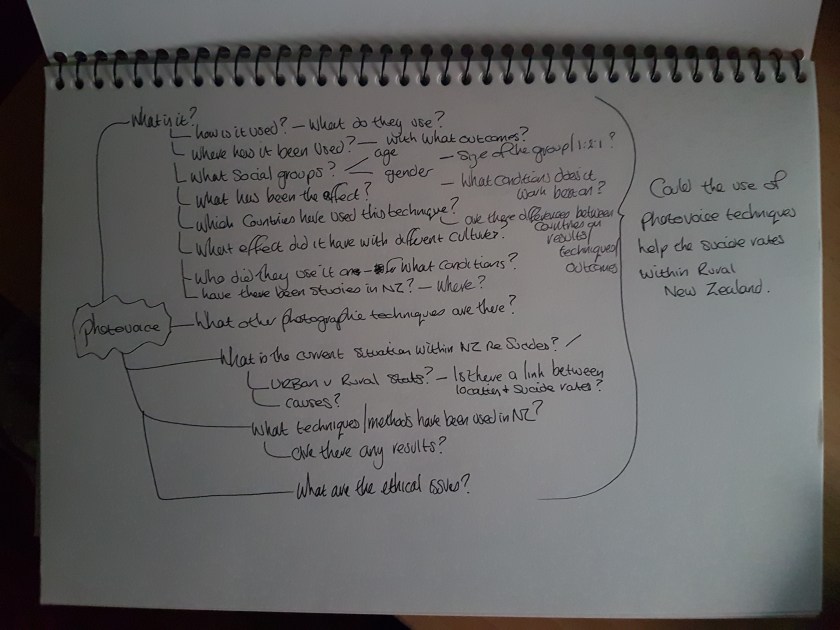 What is it?
how is it used? – What do they use?
Where has it been used? – with what outcomes?
What Social groups? age
gender
– Size of the group / 1:2:1?
What has been the effect?
– What conditions does it
work best on?
Which Countries have used this technique?
are there differences between
Countries on
results/
techniques/
outcomes
What effect did it have with different cultures?
Who did they use it on – for What conditions?
have there been studies in NZ? – Where?
photovoice
What other photographic techniques are there?
What is the current situation within NZ Re Suicides? /
URBan v Rural Stats? – Is there a link between
location + suicide rates?
causes?
What techniques/methods have been used in NZ?
Are there any results?
What are the ethical issues?
Could the use of
photovoice techniques
help the suicide rates
within Rural
New Zealand.